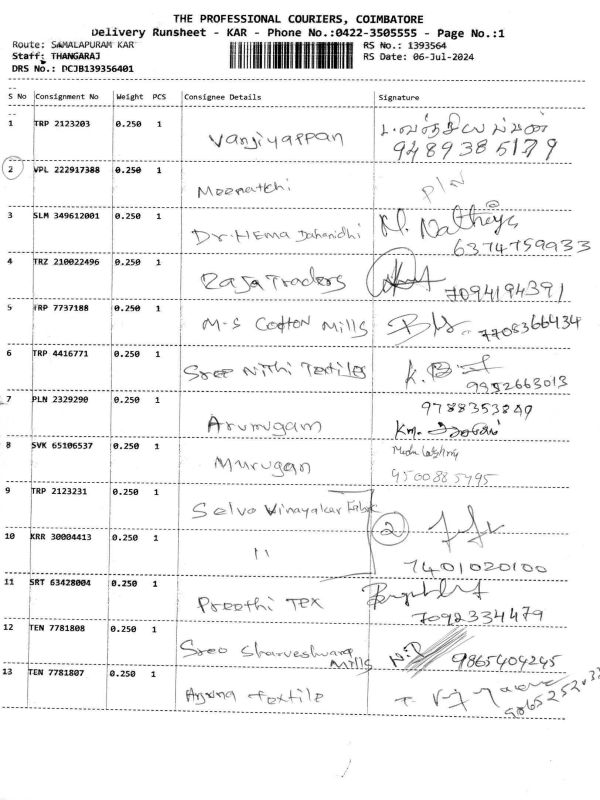 THE PROFESSIONAL COURIERS, COIMBATORE
Delivery Runsheet - KAR - Phone No.:0422-3505555 - Page No.:1
Route: SAMALAPURAM KAR RS No.: 1393564
Staff: THANGARAJ RS Date: 06-Jul-2024
DRS No.: DCJB139356401
S No Consignment No Weight PCS Consignee Details Signature
1 TRP 2123203 0.250 1 Vanjiyappan
9489385179
2 VPL 222917388 0.250 1 Meenatchi PLN
3 SLM 349612001 0.250 1 Dr. Hema Dahanidhi
6374759933
4 TRZ 210022496 0.250 1 Raja Traders
7094194391
5 TRP 7737188 0.250 1 M-S Cotton Mills 7708366434
6 TRP 4416771 0.250 1 Sree Nithi Textiles K.
9952663013
7 PLN 2329290 0.250 1 Arumugam 9788353849
Km.
8 SVK 65106537 0.250 1 Murugan
9500885495
9 TRP 2123231 0.250 1 Selva Vinayakar Fabric
2
10 KRR 30004413 0.250 1 11
7401020100
11 SRT 63428004 0.250 1 Preethi Tex
7092334479
12 TEN 7781808 0.250 1 Sree Sharveshwara
Mills 9865404245
13 TEN 7781807 0.250 1 Textile